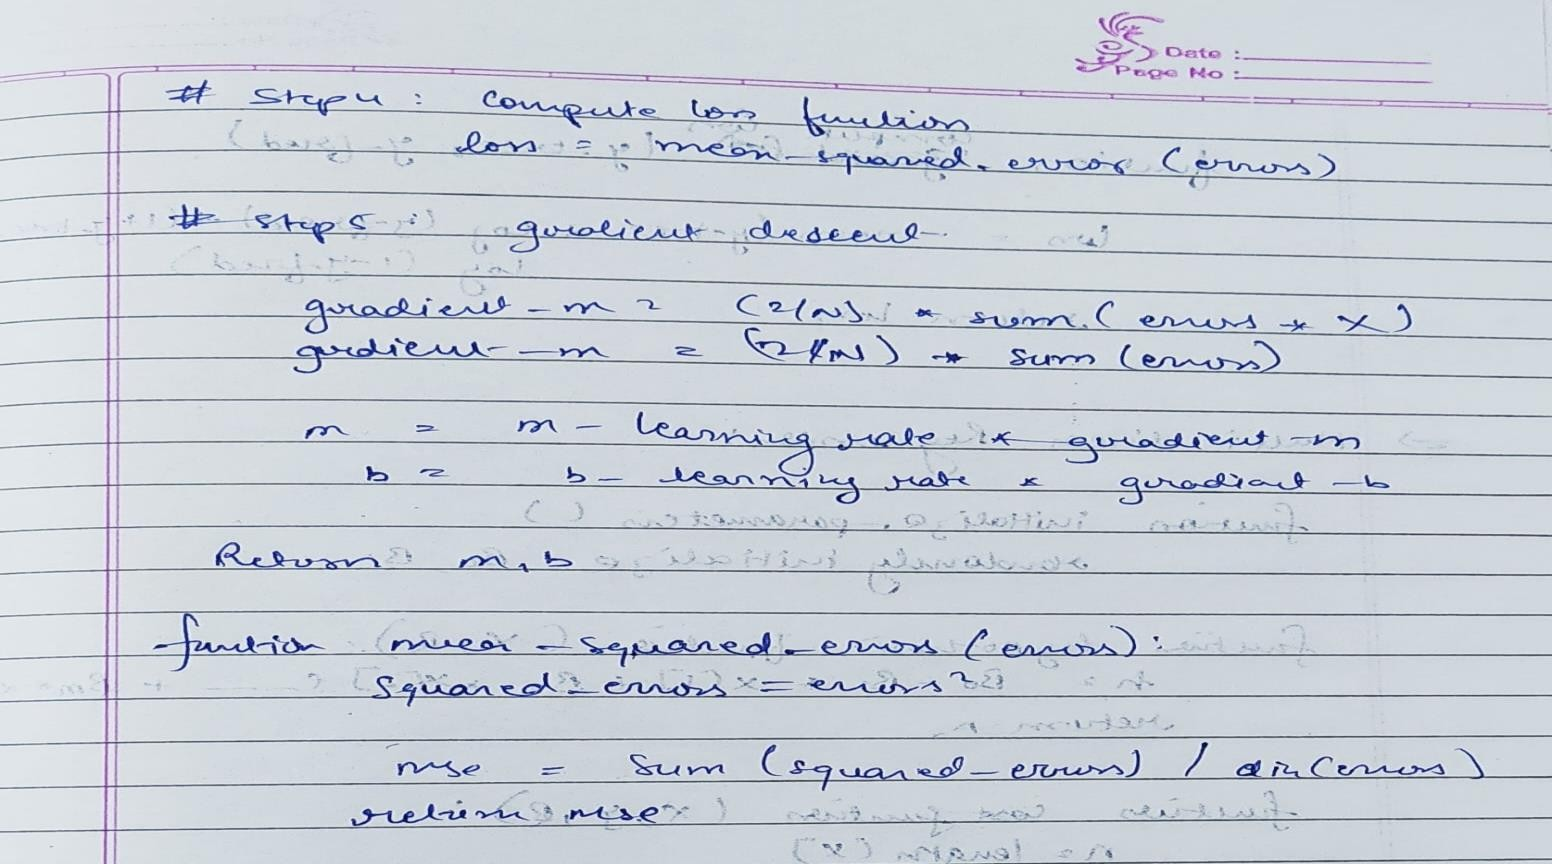 Date :
Page No :
# Step 4 : compute loss function
loss = mean-squared-error (errors)
# step 5 : gradient descent
gradient-m = (2/N) * sum (errors * X)
gradient-m = (2/N) * sum (errors)
m = m - learning rate * gradient-m
b = b - learning rate * gradient-b
Return m, b
function mean-squared-errors (errors) :
squared-errors = errors²
mse = sum (squared-errors) / (errors)
return mse